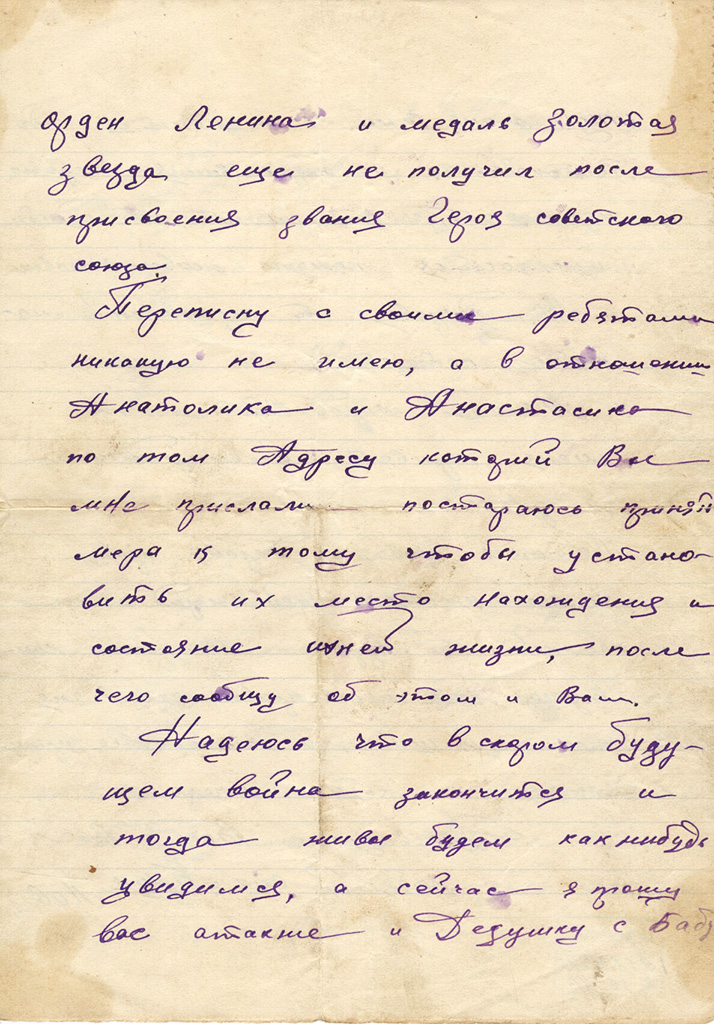 орден Ленина и медаль золотая
звезда еще не получил после
присвоения звания Героя советского
союза.
Переписку с своими ребятами
никакую не имею, а в отношении
Анатолика и Анастасика
по том Адресу который Вы
мне прислали постараюсь принят
мера к тому чтобы устано-
вить их место нахождения и
состояние ихней жизни, после
чего сообщу об этом и Вам.
Надеюсь что в скором буду-
щем война закончится и
тогда живы будем как нибудь
увидимся, а сейчас я прошу
вас атакже и Дедушку с Баб